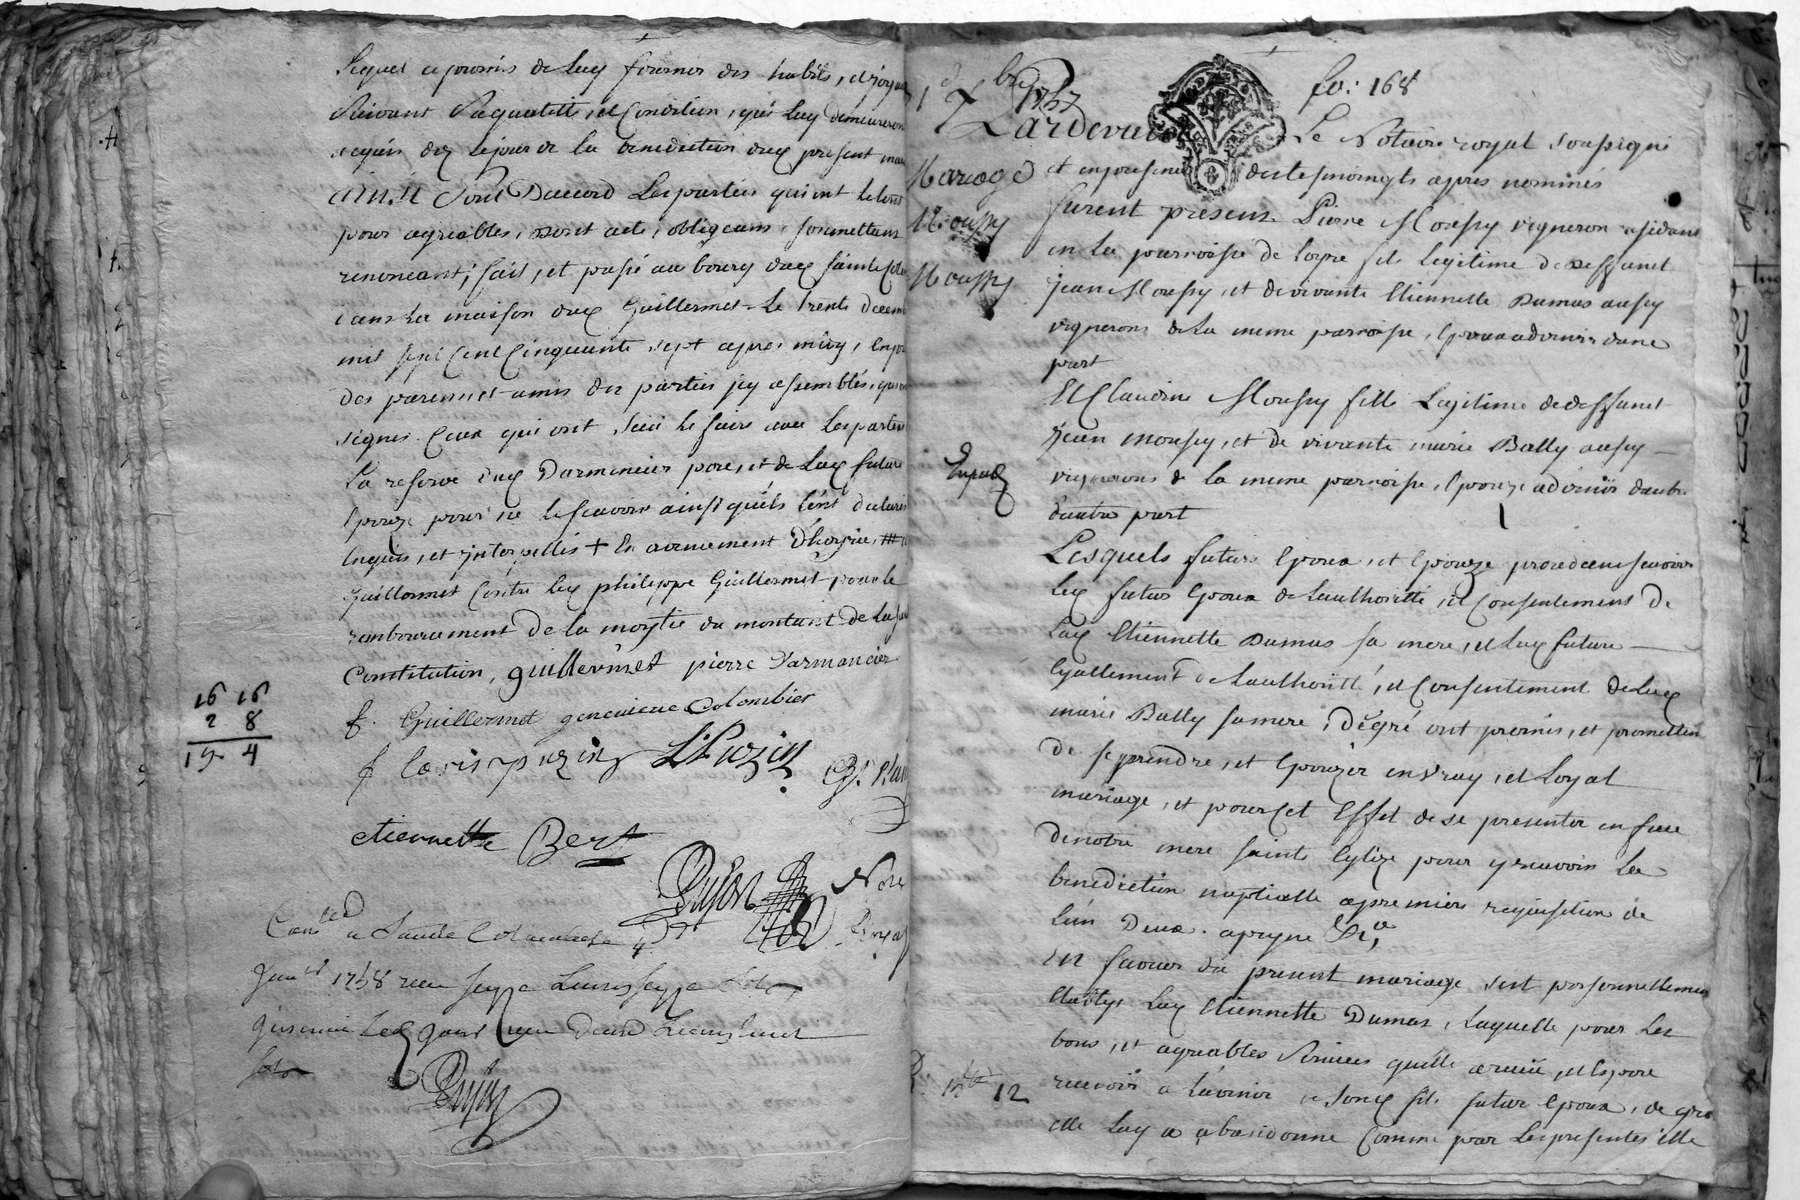 Lequel a promis de luy fournir des habits, et joyaux
suivant sa quantité, et condition, qui luy demeureront
acquis dez lejour de la benediction dux present mar
Ainsi sont Daccord Les parties qui ont letout
pour agreables, dont acte, obligeans, soumettans
renonceant; fait, et passé au bourg dux sainte
dans la maison dux Guillermet Le trente decem
mil sept Cent Cinquante sept apres midy, En
des parens et amis des parties jcy assemblés, qui
signes Ceux qui ont sceü le faire avec Les parties
La reserve dux Darmencier pere, et de Lax future
Epouze pour ne le scavoir ainsi quils L'ont declaré
Enquis, et jnterpellés + En avenement D'hoyrie
Guillermet Contre lex philippe Guillermet pour le
remboursement de la moytié du montant de La
Constitution, guillermet pierre Darmancier
f. Guillermet genevieve colombier
f lovis puzin L Puzin
etiennette Bert
Dujon Nore
16 16
2 8
19 4
Con lé a Sainte Colombe le 4
Janer 1758 receu seyze Livres seyze sols
Dujon
fo: 168
1er Xbre 1757
Lardevu
Le Notaire royal soussigné
Mariage
et en presence des tesmoingts apres nommés
Moussy
furent presens Pierre Moussy vigneron residant
en La parroisse de Loyre fils legitime de deffunt
Moussy
jean Moussy, et de vivante Etiennette Dumas aussy
vignerons de La meme parroisse, Epoux advenir dune
part
Et Claudine Moussy fille Legitime de deffunt
jean moussy, et de vivante marie Bally aussy
Expédz
vignerons de La meme parroisse, Epouze advenir dautre
dautre part
Lesquels futurs Epoux, et Epouze procedeans scavoir
Lex futur Epoux de Lauthorité, et Consentement de
Lax Etiennette Dumas sa mere, et Lax future
Egallement de Lauthorité, et Consentement de Lax
marie Bally sa mere, de gré ont promis, et promettent
De se prendre, et Epouzer en vray, et Loyal
mariage, et pour Cet Effet de se presenter en face
denotre mere sainte Eglize pour y recevoir La
benediction nuptialle a premiere requisition de
lun Deux a peyne &a
En faveur du present mariage s'est personnellement
Etablye Lax Etiennette Dumas, Laquelle pour Les
bons, et agreables services quelle a receü, et Espere
recevoir a Lavenir de sonx fils futur Epoux, de gré
12
elle Luy a abandonné Comme par Les presentes elle